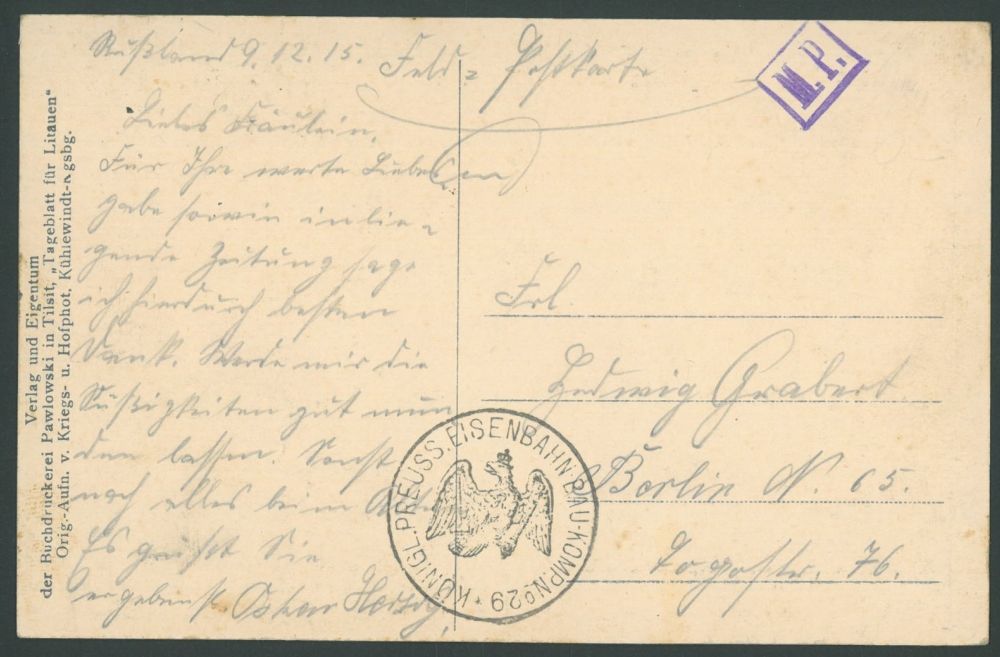 Rußland 9.12.15.
Feld= Postkarte
M.P.
Liebes Fräulein,
Für Ihre werte Liebes(m)
gabe sowie inlie=
gende Zeitung sage
ich hierdurch besten
Dank. Werde mir die
Süßigkeiten gut mun
den lassen. Sonst
noch alles beim Alten
Es grüßt Sie
ergebenst Oskar Herzog
Frl.
Hedwig Grabert
Berlin N. 65.
Togostr. 76.
KÖNIGL. PREUSS. EISENBAHN-BAU-KOMP. No 29 *
Verlag und Eigentum
der Buchdruckerei Pawlowski in Tilsit, „Tageblatt für Litauen“
Orig.-Aufn. v. Kriegs- u. Hofphot. Kühlewindt-Kgsbg.